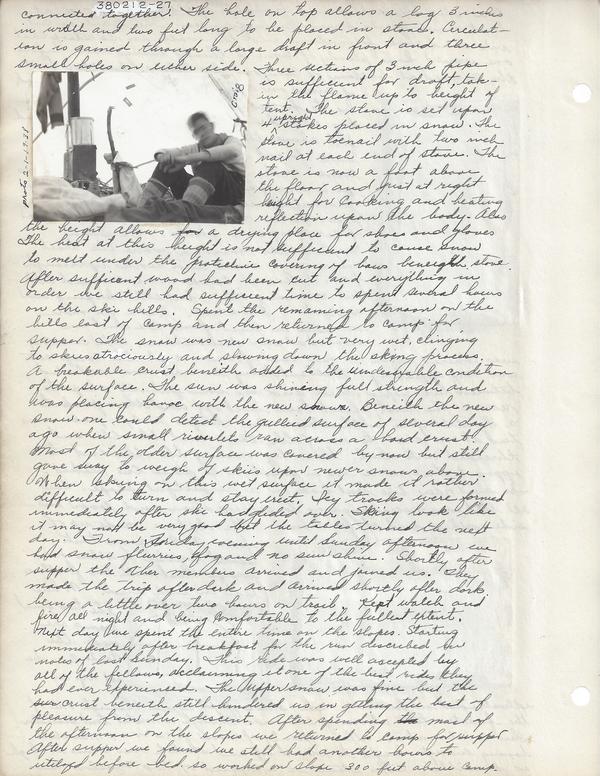 380212-27
connected together. The hole on top allows a log 3 inches
in width and two feet long to be placed in stove. Circulat-
ion is gained through a large draft in front and three
small holes on either side. Three sections of 3 inch pipe
is sufficient for draft, tak-
in the flame up to height of
tent. The stove is set upon
4 upright stakes placed in snow. The
stove is toenail with two inch
nail at each end of stove. The
stove is now a foot above
the floor and just at right
height for cooking and heating
reflection upon the body. Also
Craig
photo 2-1-1938
the height allows for a drying place for shoes and gloves
The heat at this height is not sufficient to cause snow
to melt under the protective covering of bows beneath stove.
After sufficent wood had been cut and everything in
order we still had sufficient time to spend several hours
on the ski hills. Spent the remaining afternoon on the
hills east of camp and then returned to camp for
supper. The snow was new snow but very wet, clinging
to skies atrociously and slowing down the skiing process.
A breakable crust beneith added to the undesirable condition
of the surface. The sun was shineing full strength and
was placing havoc with the new snow. Beneith the new
snow one could detect the gullied surface of several day
ago when small riverlets ran across a hard crust.
Most of the older surface was covered by now but still
gave way to weigh of skiis upon newer snows above.
When skiing on this wet surface it made it rather
difficult to turn and stay erect. Icy tracks were formed
immediately after ski had glided over. Skiing look like
it may not be very good but the tables turned the next
day. From Saturday evening until Sunday afternoon we
had snow flurries, fog and no sun shine. Shortly after
supper the other members arrived and joined us. They
made the trip after dark and arrived shortly after dark
being a little over two hours on trail. Kept watch and
fire all night and being comfortable to the fullest extent.
Next day we spent the entire time on the slopes. Starting
immediately after breakfast for the run described in
notes of last Sunday. This ride was well accepted by
all of the fellows, acclaiming it one of the best rides they
had ever experienced. The upper snow was fine but the
crust beneith still hindered us in getting the best of
pleasure from the descent. After spending most of
the afternoon on the slopes we returned to camp for supper
After supper we found we still had another hours to
utilized before bed. so worked on slope 300 feet above camp.